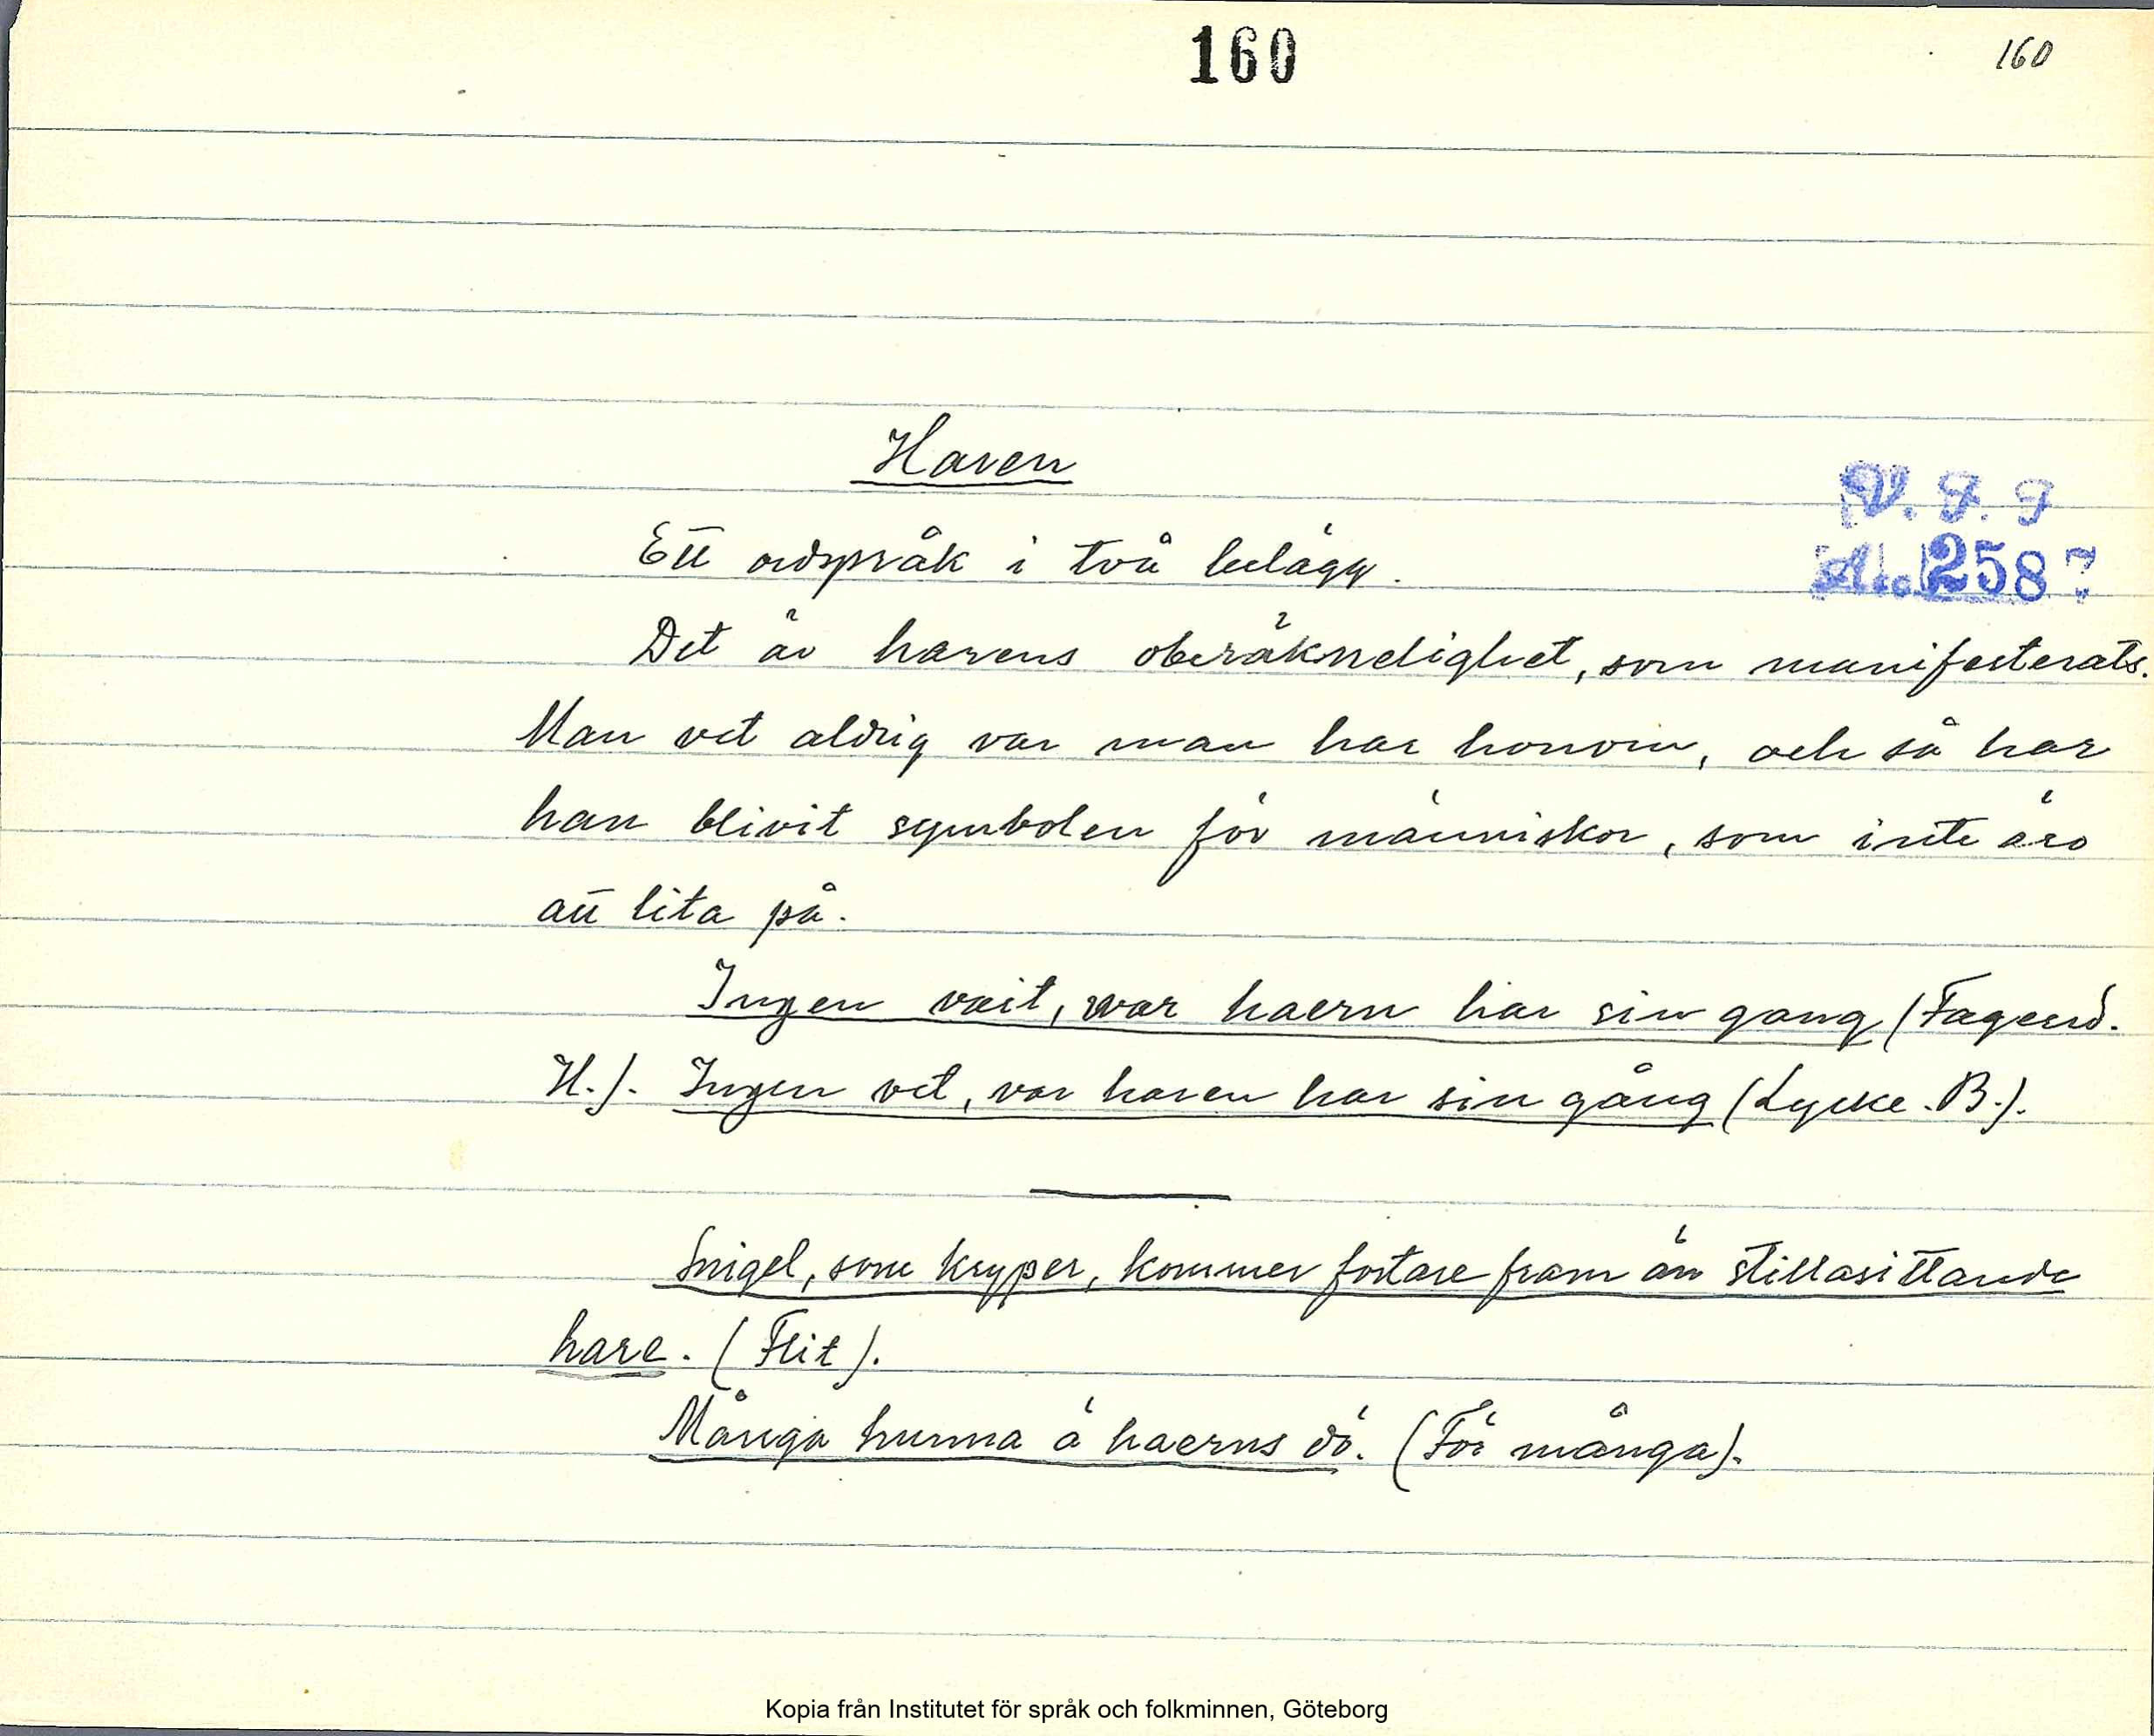 160
160
Haren
V. F. F
Acc. 258?
Ett ordspråk i två belägg.
Det är harens oberäknelighet, som manifesterats.
Man vet aldrig var man har honom, och så har
han blivit symbolen för människor, som inte äro
att lita på.
Ingen vait, war haern har sin gang (Fageud.
H.). Ingen vet, var haren har sin gång (Lycke. B.).
Snigel, som kryper, kommer fortare fram än stillasittande
hare. (Flit).
Många hunna ä haerns dö. (För många).
Kopia från Institutet för språk och folkminnen, Göteborg